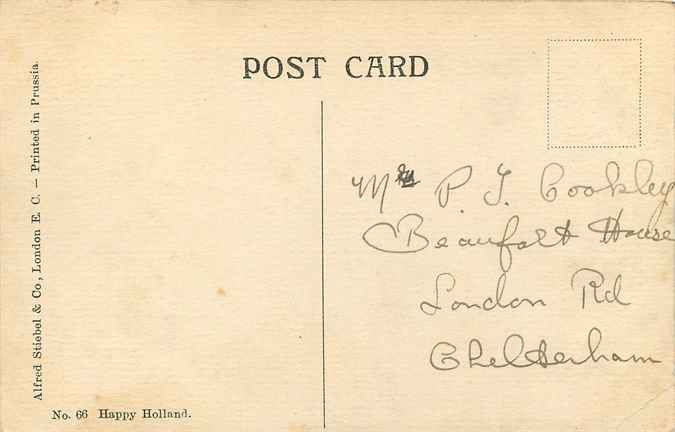 POST CARD
Alfred Stiebel & Co, London E. C. — Printed in Prussia.
P. T. Cookley
Beaufort House
London Rd
Cheltenham
No. 66 Happy Holland.